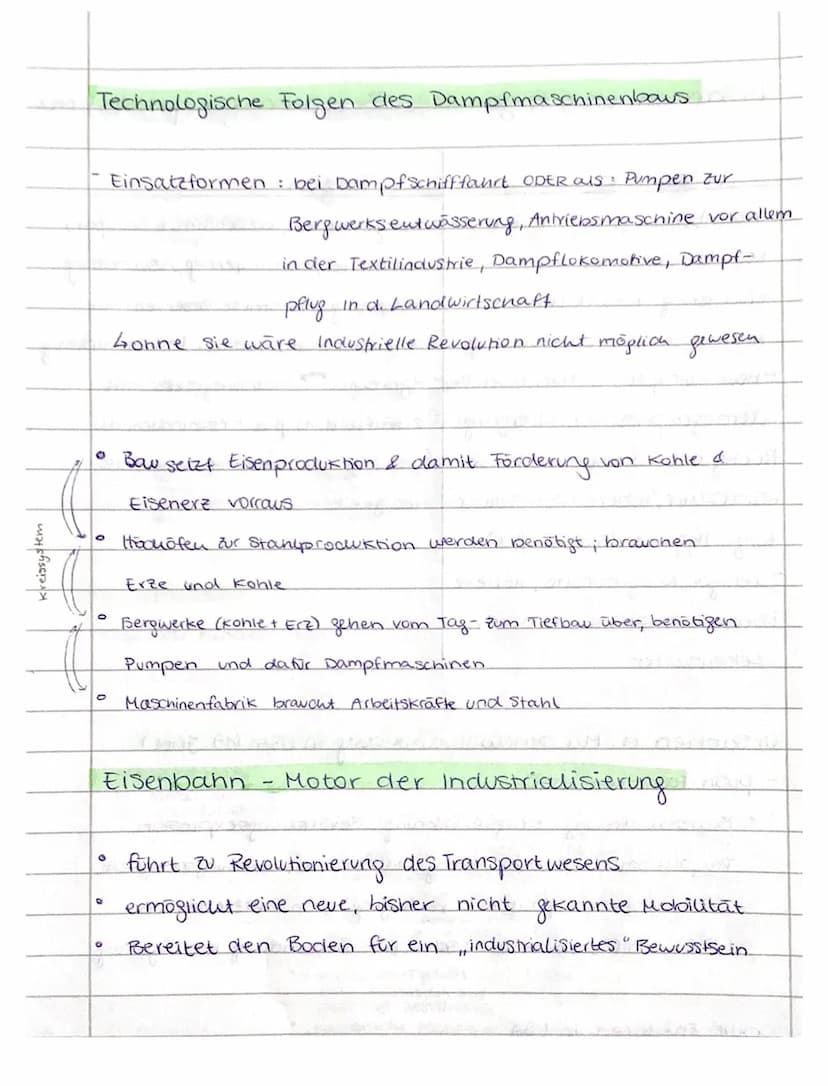 Technologische Folgen des Dampfmaschinenbaus
- Einsatzformen : bei Dampfschifffahrt ODER als : Pumpen zur
Bergwerksentwässerung, Antriebsmaschine vor allem
in der Textilindustrie, Dampflokomotive, Dampf-
pflug in d. Landwirtschaft
↳ ohne sie wäre Industrielle Revolution nicht möglich gewesen
• Bau setzt Eisenproduktion & damit Förderung von Kohle &
Eisenerz vorraus
• Hochöfen zur Stahlproduktion werden benötigt ; brauchen
Erze und Kohle
• Bergwerke (Kohle + Erz) gehen vom Tag- zum Tiefbau über, benötigen
Pumpen und dafür Dampfmaschinen
• Maschinenfabrik braucht Arbeitskräfte und Stahl
Kreissystem
Eisenbahn - Motor der Industrialisierung
• führt zu Revolutionierung des Transportwesens
• ermöglicht eine neue, bisher nicht gekannte Mobilität
• Bereitet den Boden für ein „industrialisiertes" Bewusstsein